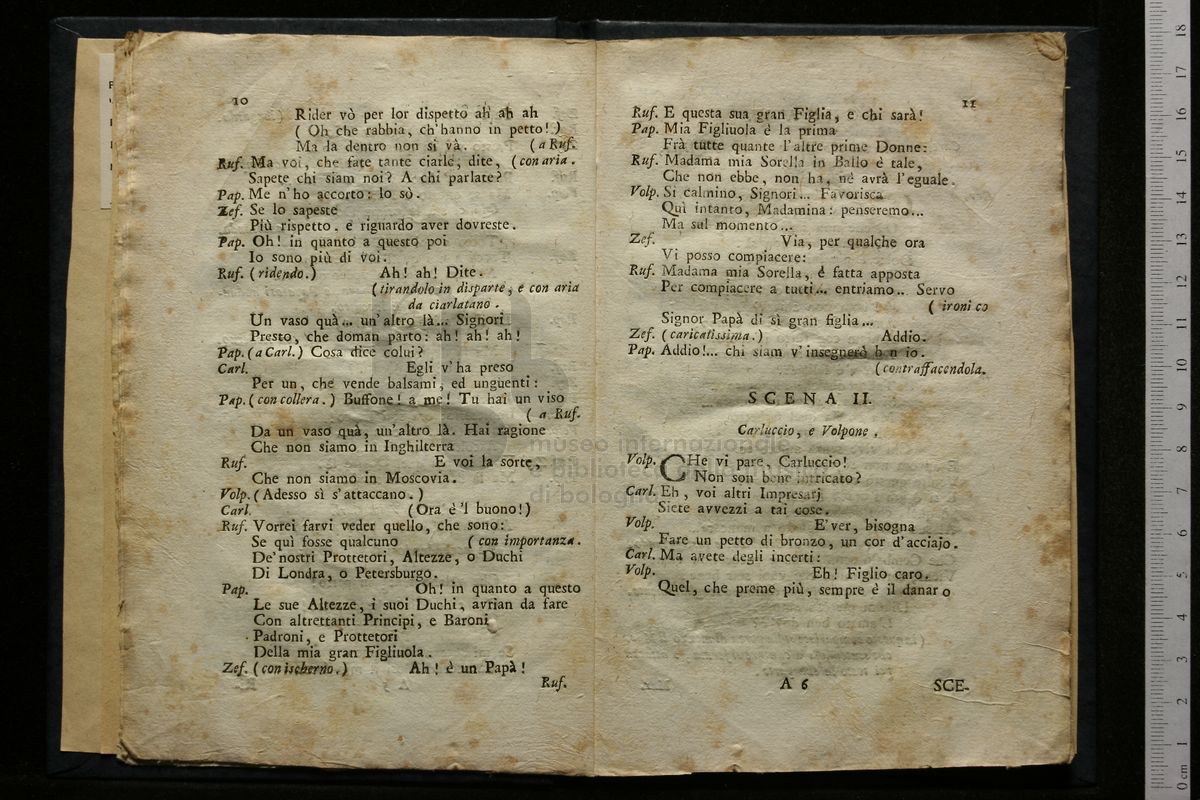 10
Rider vò per lor dispetto ah ah ah
( Oh che rabbia, ch'hanno in petto! )
Ma la dentro non si và. ( a Ruf.
Ruf. Ma voi, che fate tante ciarle, dite, ( con aria .
Sapete chi siam noi? A chi parlate?
Pap. Me n'ho accorto: lo sò.
Zef. Se lo sapeste
Più rispetto. e riguardo aver dovreste.
Pap. Oh! in quanto a questo poi
Io sono più di voi.
Ruf. ( ridendo. ) Ah! ah! Dite.
( tirandolo in disparte, e con aria
da ciarlatano .
Un vaso quà... un'altro là... Signori
Presto, che doman parto: ah! ah! ah!
Pap. ( a Carl. ) Cosa dice colui?
Carl. Egli v'ha preso
Per un, che vende balsami, ed unguenti:
Pap. ( con collera. ) Buffone! a me! Tu hai un viso
( a Ruf.
Da un vaso quà, un'altro là. Hai ragione
Che non siamo in Inghilterra
Ruf. E voi la sorte,
Che non siamo in Moscovia.
Volp. ( Adesso sì s'attaccano. )
Carl. ( Ora è'l buono! )
Ruf. Vorrei farvi veder quello, che sono:
Se quì fosse qualcuno ( con importanza.
De'nostri Prottetori, Altezze, o Duchi
Di Londra, o Petersburgo.
Pap. Oh! in quanto a questo
Le sue Altezze, i suoi Duchi, avrian da fare
Con altrettanti Principi, e Baroni
Padroni, e Prottetori
Della mia gran Figliuola.
Zef. ( con ischerno. ) Ah! è un Papà!
Ruf.
11
Ruf. E questa sua gran Figlia, e chi sarà!
Pap. Mia Figliuola è la prima
Frà tutte quante l'altre prime Donne:
Ruf. Madama mia Sorella in Ballo è tale,
Che non ebbe, non ha, nè avrà l'eguale.
Volp. Si calmino, Signori... Favorisca
Quì intanto, Madamina: penseremo...
Ma sul momento...
Zef. Via, per qualche ora
Vi posso compiacere:
Ruf. Madama mia Sorella, è fatta apposta
Per compiacere a tutti... entriamo.. Servo
( ironico
Signor Papà di sì gran figlia...
Zef. ( caricatissima. ) Addio.
Pap. Addio!... chi siam v'insegnerò ben io.
( contraffacendola.
SCENA II.
Carluccio, e Volpone .
Volp. CHe vi pare, Carluccio!
Non son bene intricato?
Carl. Eh, voi altri Impresarj
Siete avvezzi a tai cose.
Volp. E'ver, bisogna
Fare un petto di bronzo, un cor d'acciajo.
Carl. Ma avete degli incerti:
Volp. Eh! Figlio caro.
Quel, che preme più, sempre è il danaro
A 6
SCE-
museo internazionale
e biblioteca della musica
di bologna